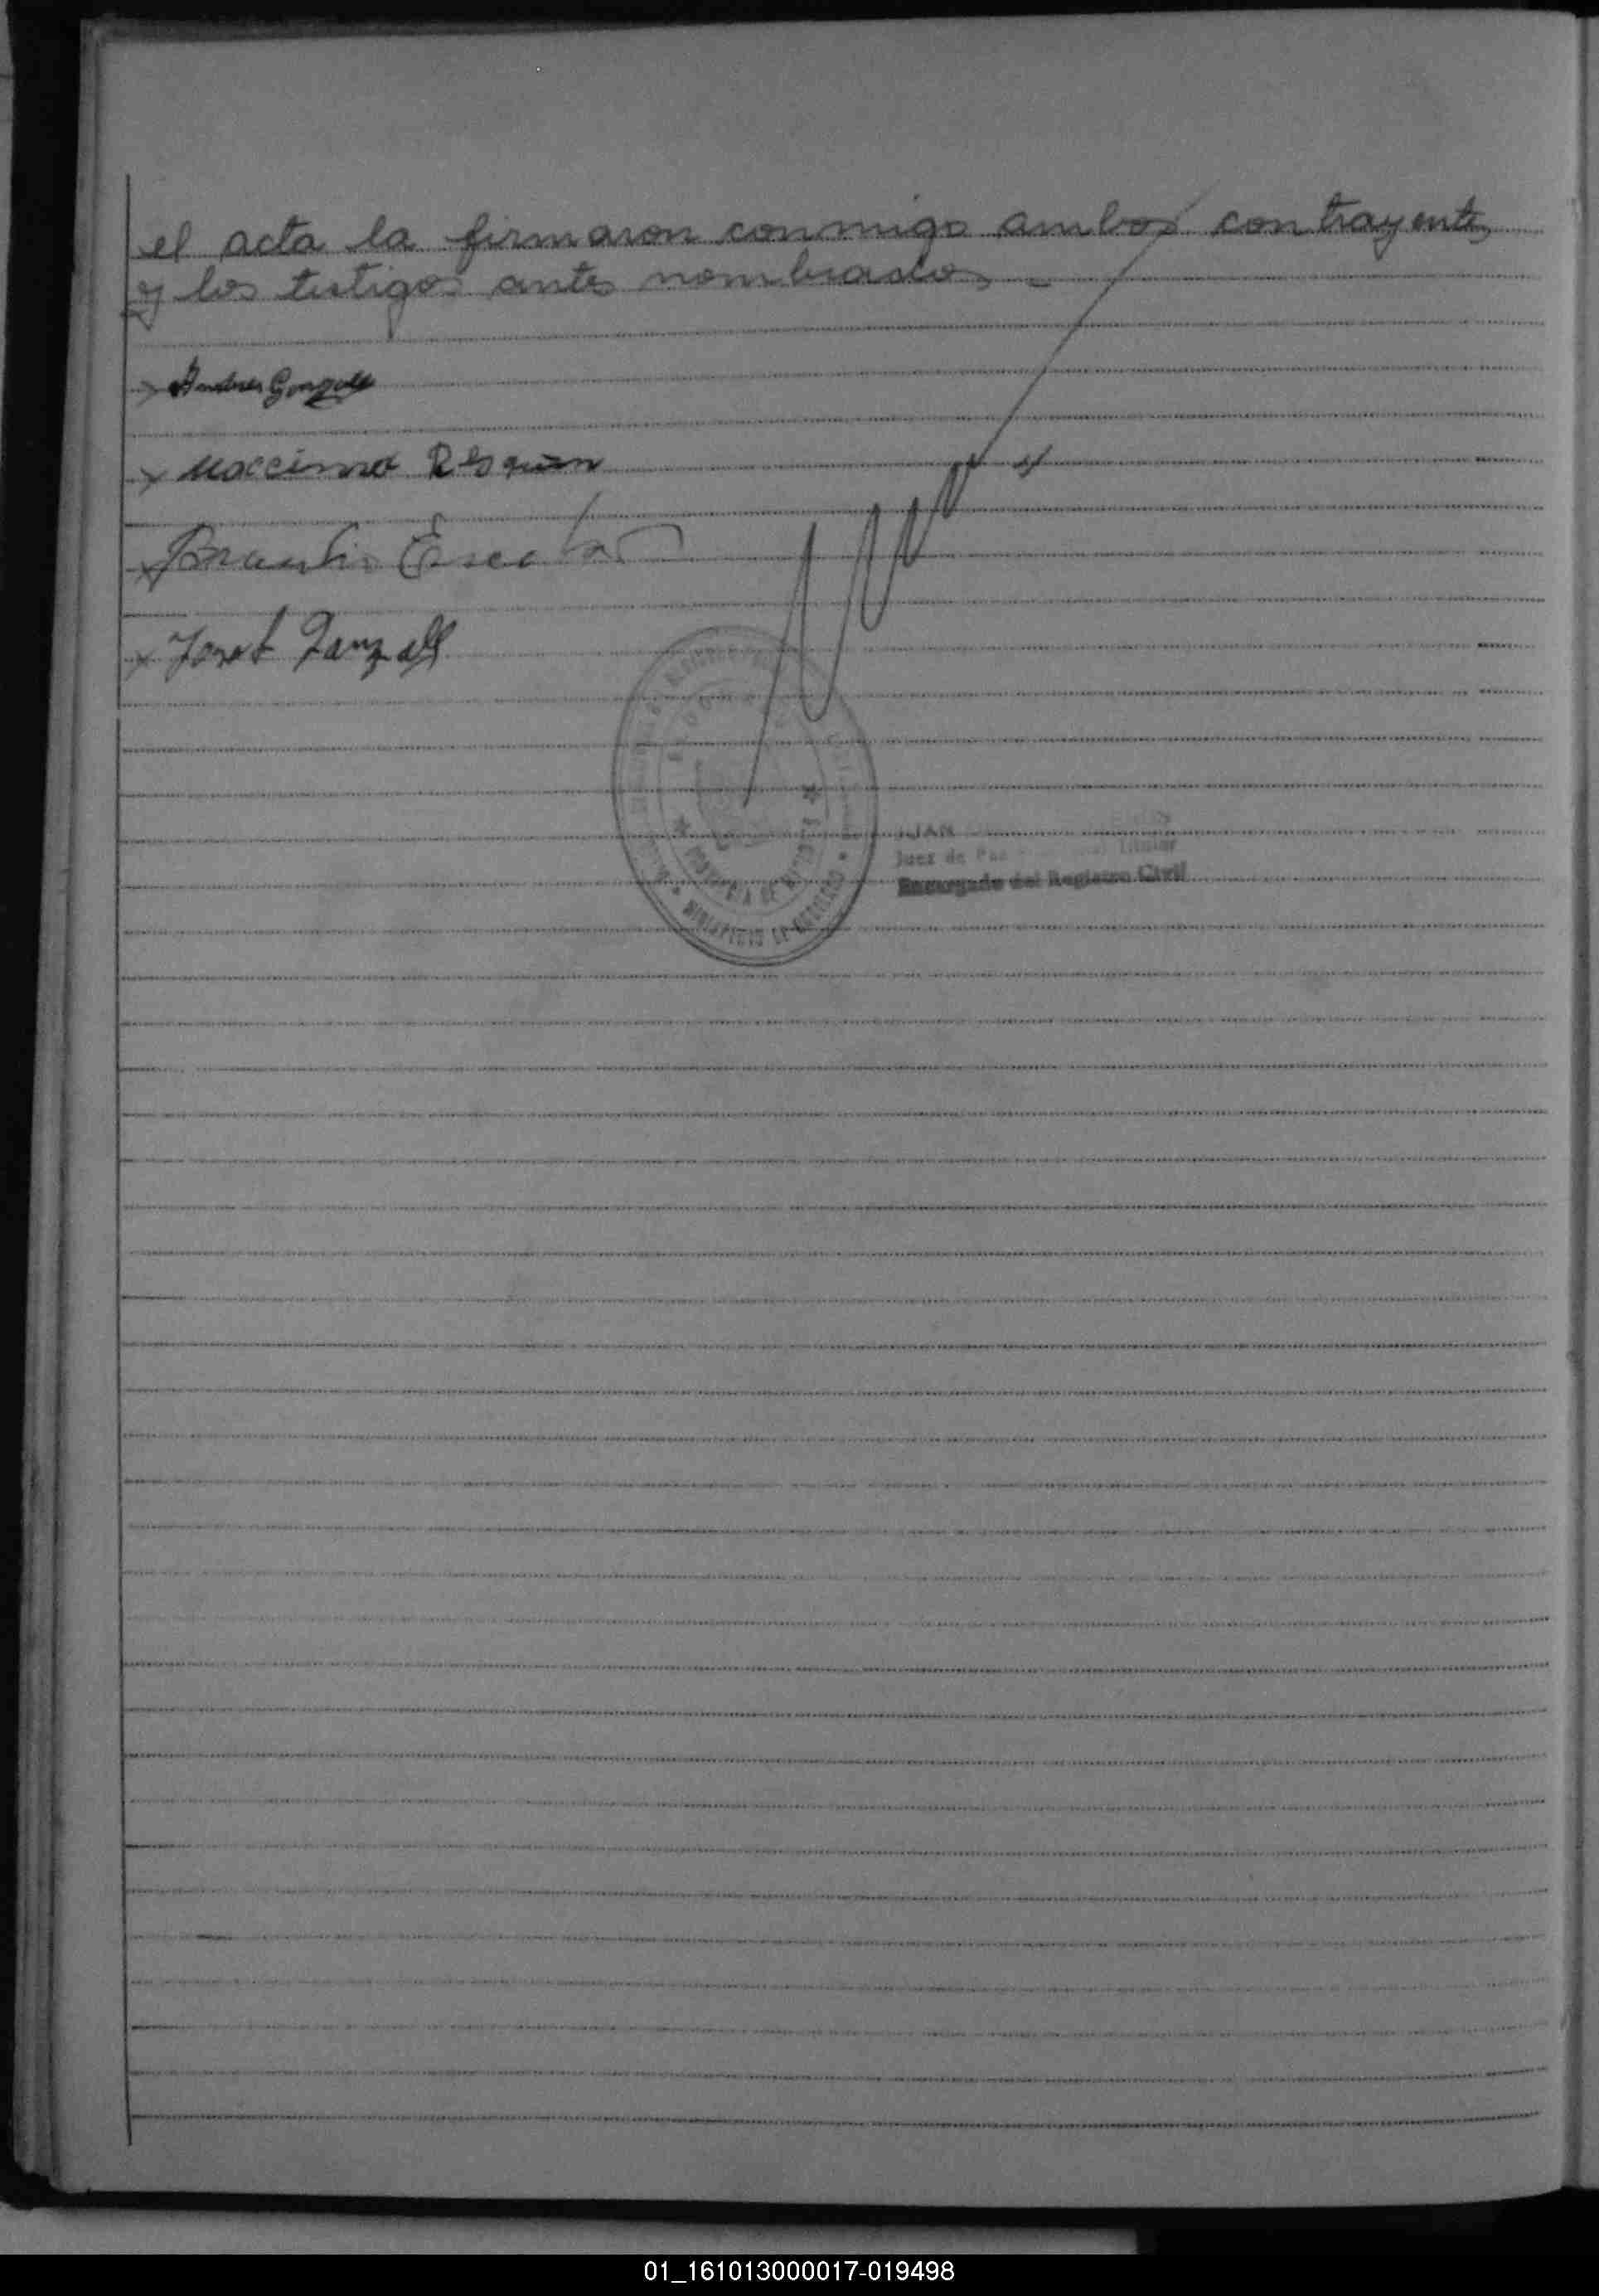 el acta la firmaron conmigo ambos contrayentes
y los testigos antes nombrados. -
x Andres Gonzale
x Maccimo Resquin
x Braulio Escobar
x José
JUAN
Juez de Paz Titular
Encargado del Registro Civil
MINISTERIO DE
01_161013000017-019498